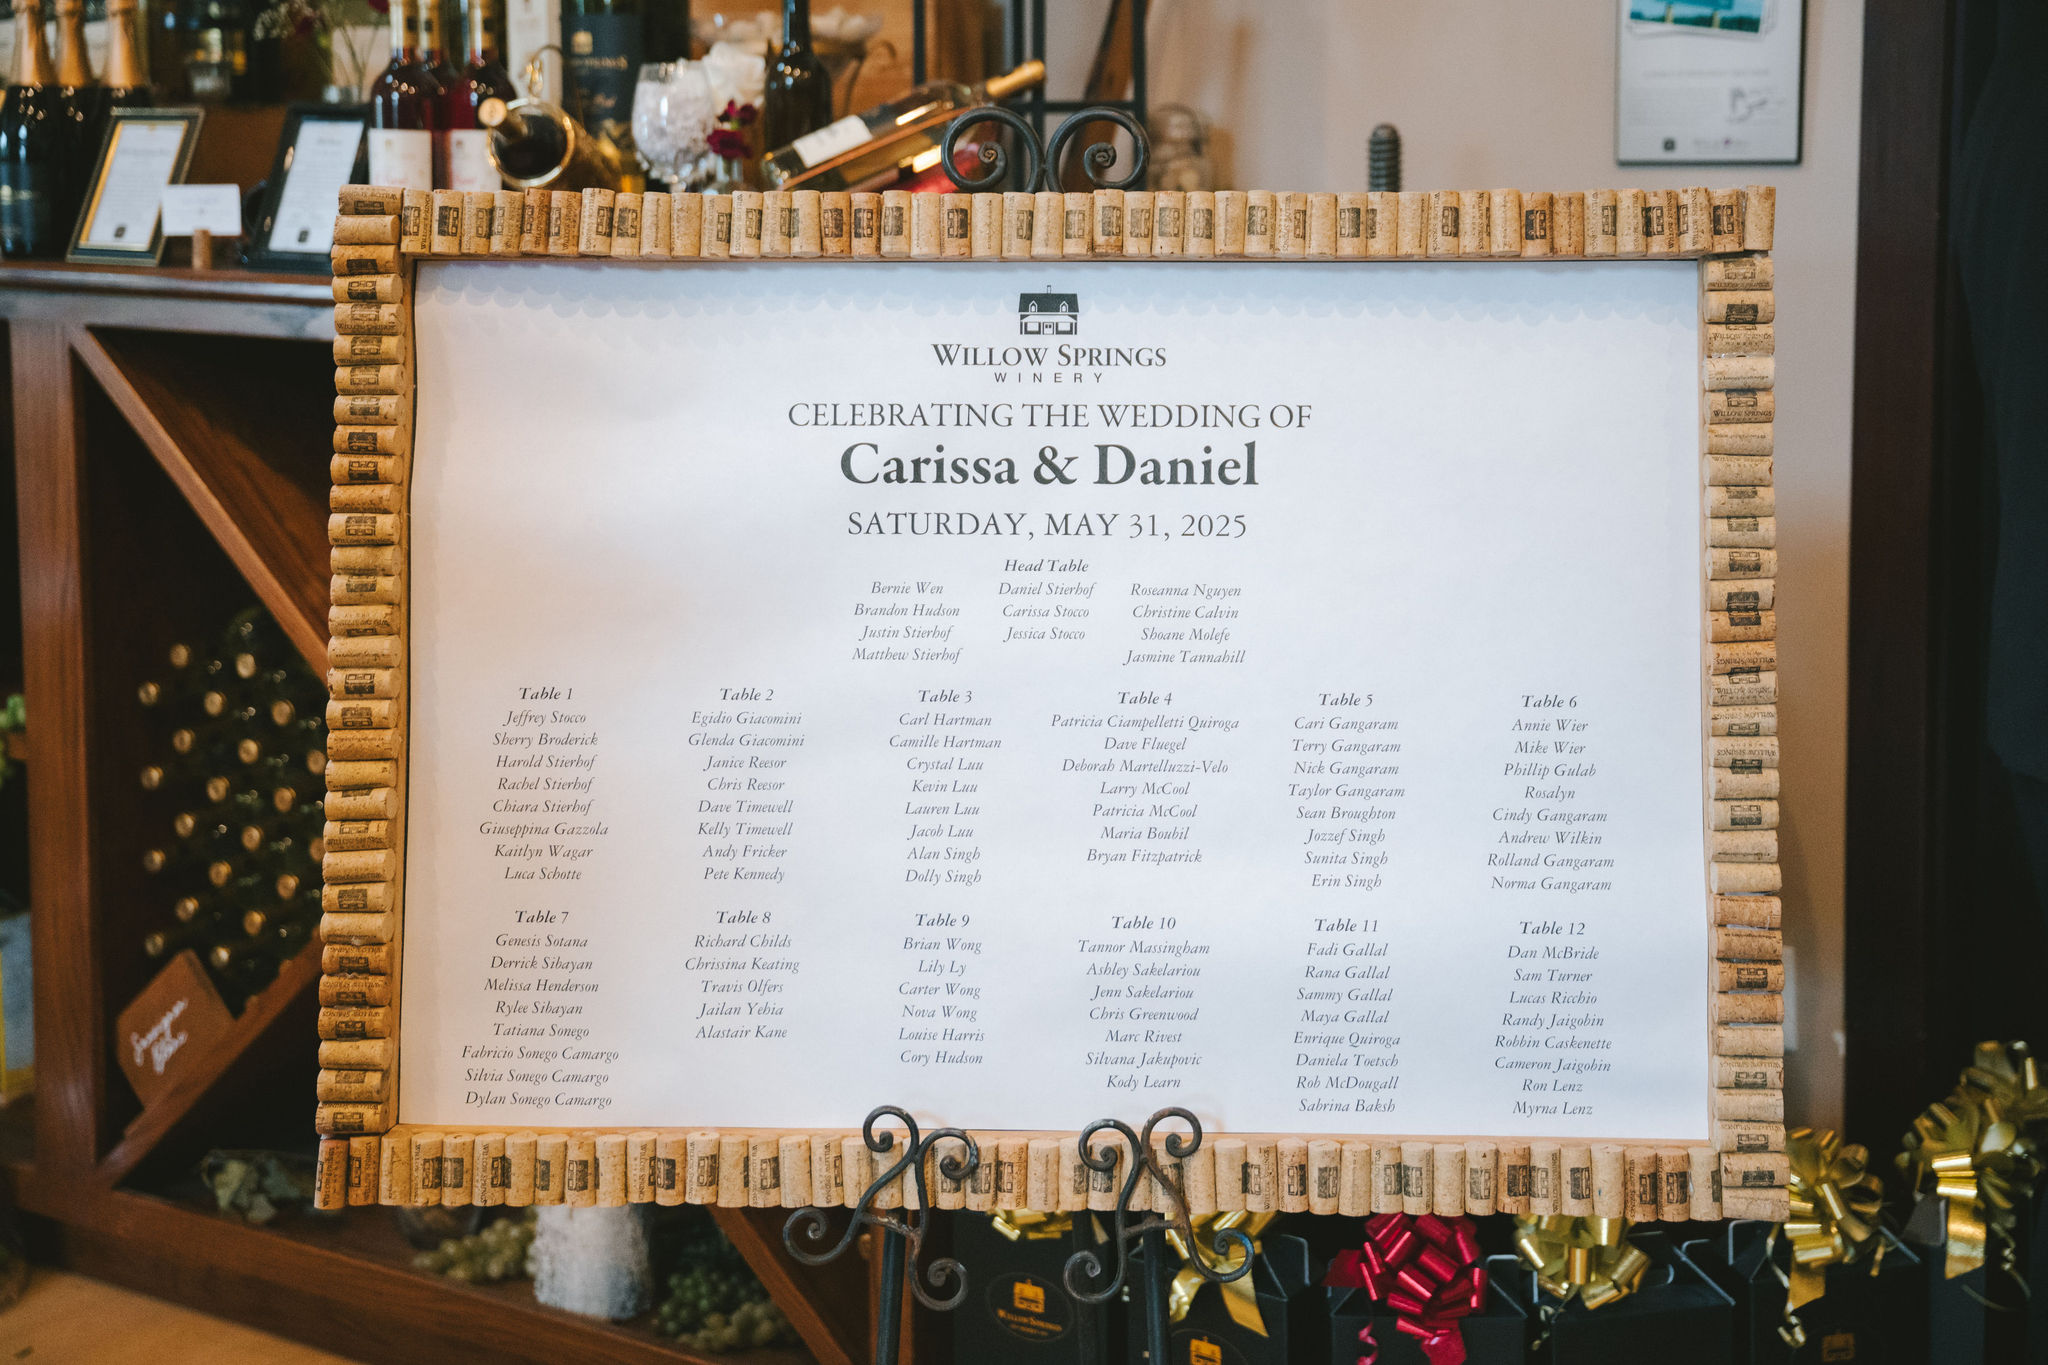 WILLOW SPRINGS
WINERY
CELEBRATING THE WEDDING OF
Carissa & Daniel
SATURDAY, MAY 31, 2025
Head Table
Bernie Wen
Brandon Hudson
Justin Stierhof
Matthew Stierhof
Daniel Stierhof
Carissa Stocco
Jessica Stocco
Roseanna Nguyen
Christine Calvin
Shoane Molefe
Jasmine Tannahill
Table 1
Jeffrey Stocco
Sherry Broderick
Harold Stierhof
Rachel Stierhof
Chiara Stierhof
Giuseppina Gazzola
Kaitlyn Wagar
Luca Schotte
Table 2
Egidio Giacomini
Glenda Giacomini
Janice Reesor
Chris Reesor
Dave Timewell
Kelly Timewell
Andy Fricker
Pete Kennedy
Table 3
Carl Hartman
Camille Hartman
Crystal Luu
Kevin Luu
Lauren Luu
Jacob Luu
Alan Singh
Dolly Singh
Table 4
Patricia Ciampelletti Quiroga
Dave Fluegel
Deborah Martelluzzi-Velo
Larry McCool
Patricia McCool
Maria Boubil
Bryan Fitzpatrick
Table 5
Cari Gangaram
Terry Gangaram
Nick Gangaram
Taylor Gangaram
Sean Broughton
Jozzef Singh
Sunita Singh
Erin Singh
Table 6
Annie Wier
Mike Wier
Phillip Gulab
Rosalyn
Cindy Gangaram
Andrew Wilkin
Rolland Gangaram
Norma Gangaram
Table 7
Genesis Sotana
Derrick Sibayan
Melissa Henderson
Rylee Sibayan
Tatiana Sonego
Fabricio Sonego Camargo
Silvia Sonego Camargo
Dylan Sonego Camargo
Table 8
Richard Childs
Chrissina Keating
Travis Olfers
Jailan Yehia
Alastair Kane
Table 9
Brian Wong
Lily Ly
Carter Wong
Nova Wong
Louise Harris
Cory Hudson
Table 10
Tannor Massingham
Ashley Sakelariou
Jenn Sakelariou
Chris Greenwood
Marc Rivest
Silvana Jakupovic
Kody Learn
Table 11
Fadi Gallal
Rana Gallal
Sammy Gallal
Maya Gallal
Enrique Quiroga
Daniela Toetsch
Rob McDougall
Sabrina Baksh
Table 12
Dan McBride
Sam Turner
Lucas Ricchio
Randy Jaigobin
Robbin Caskenette
Cameron Jaigobin
Ron Lenz
Myrna Lenz
Sauvignon
Blanc
WILLOW SPRINGS